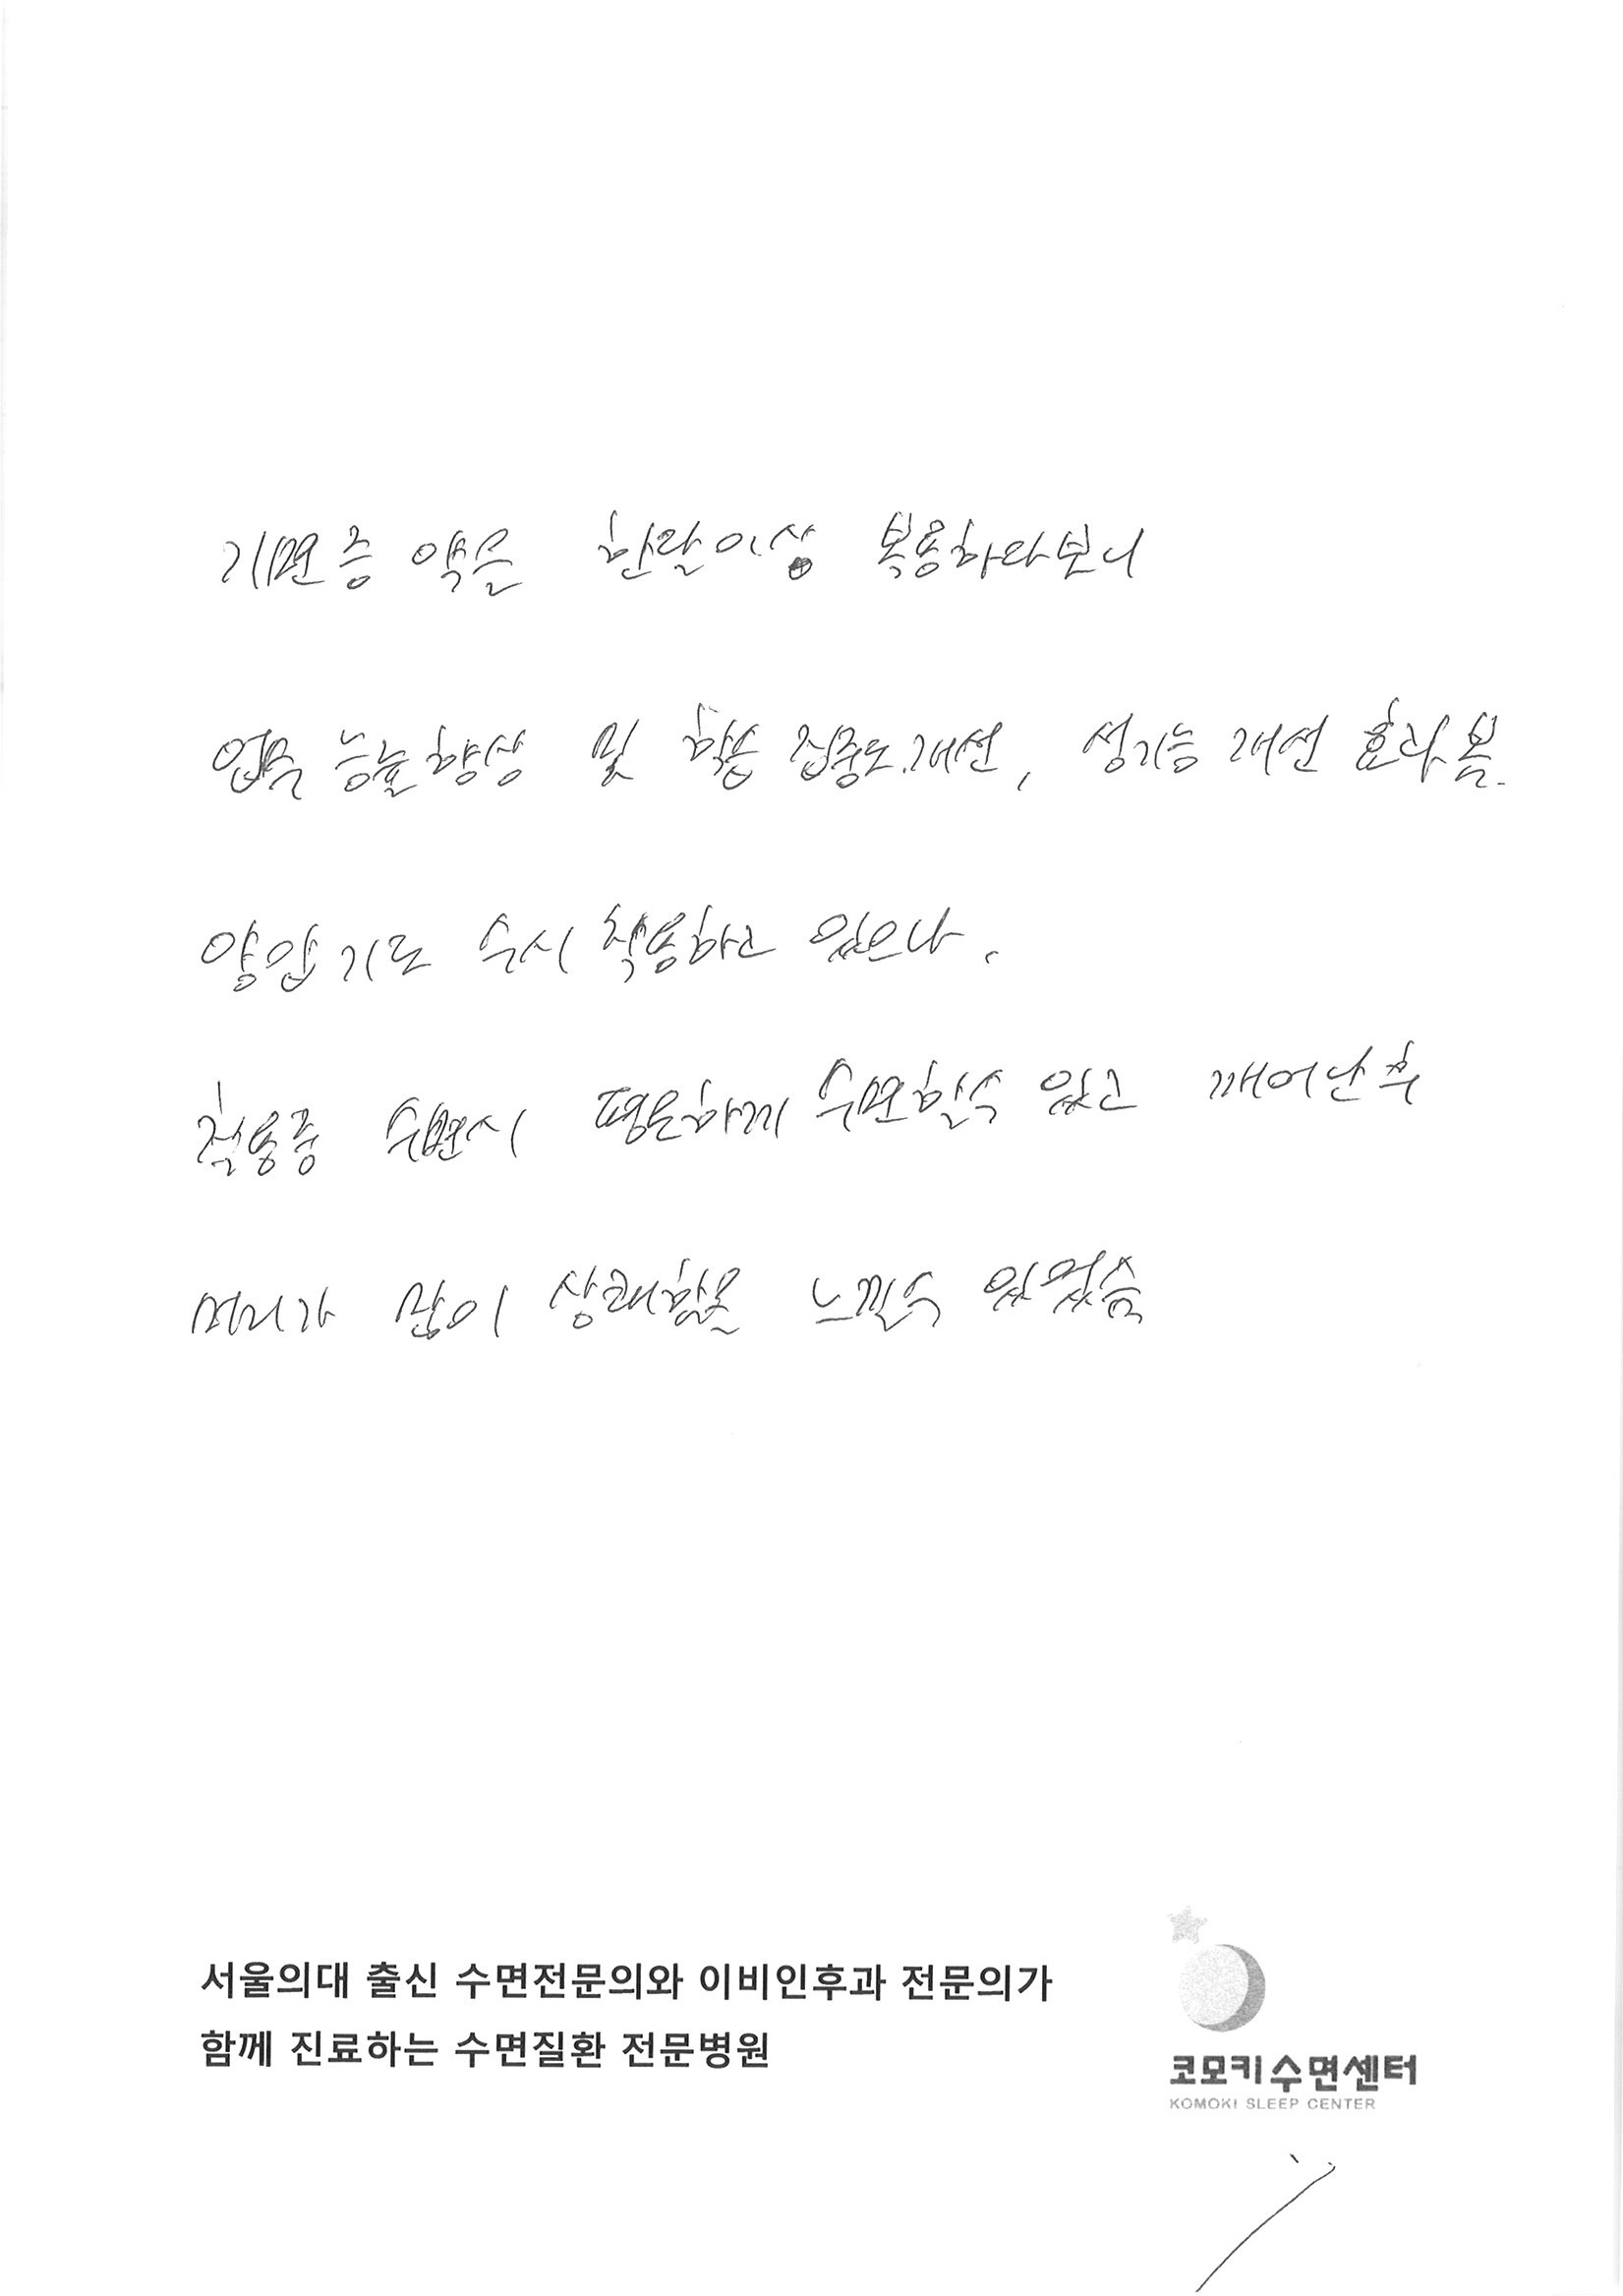 기면증 약을 한달이상 복용하다보니
업무 능률향상 및 학습 집중도.개선, 성기능 개선 효과 봄.
양압기도 수시 착용하고 있으나.
착용중 수면시 평온하게 수면할수 있고 깨어난 후
머리가 많이 상쾌함을 느낄수 있었습
서울의대 출신 수면전문의와 이비인후과 전문의가
함께 진료하는 수면질환 전문병원
코모키수면센터
KOMOKI SLEEP CENTER